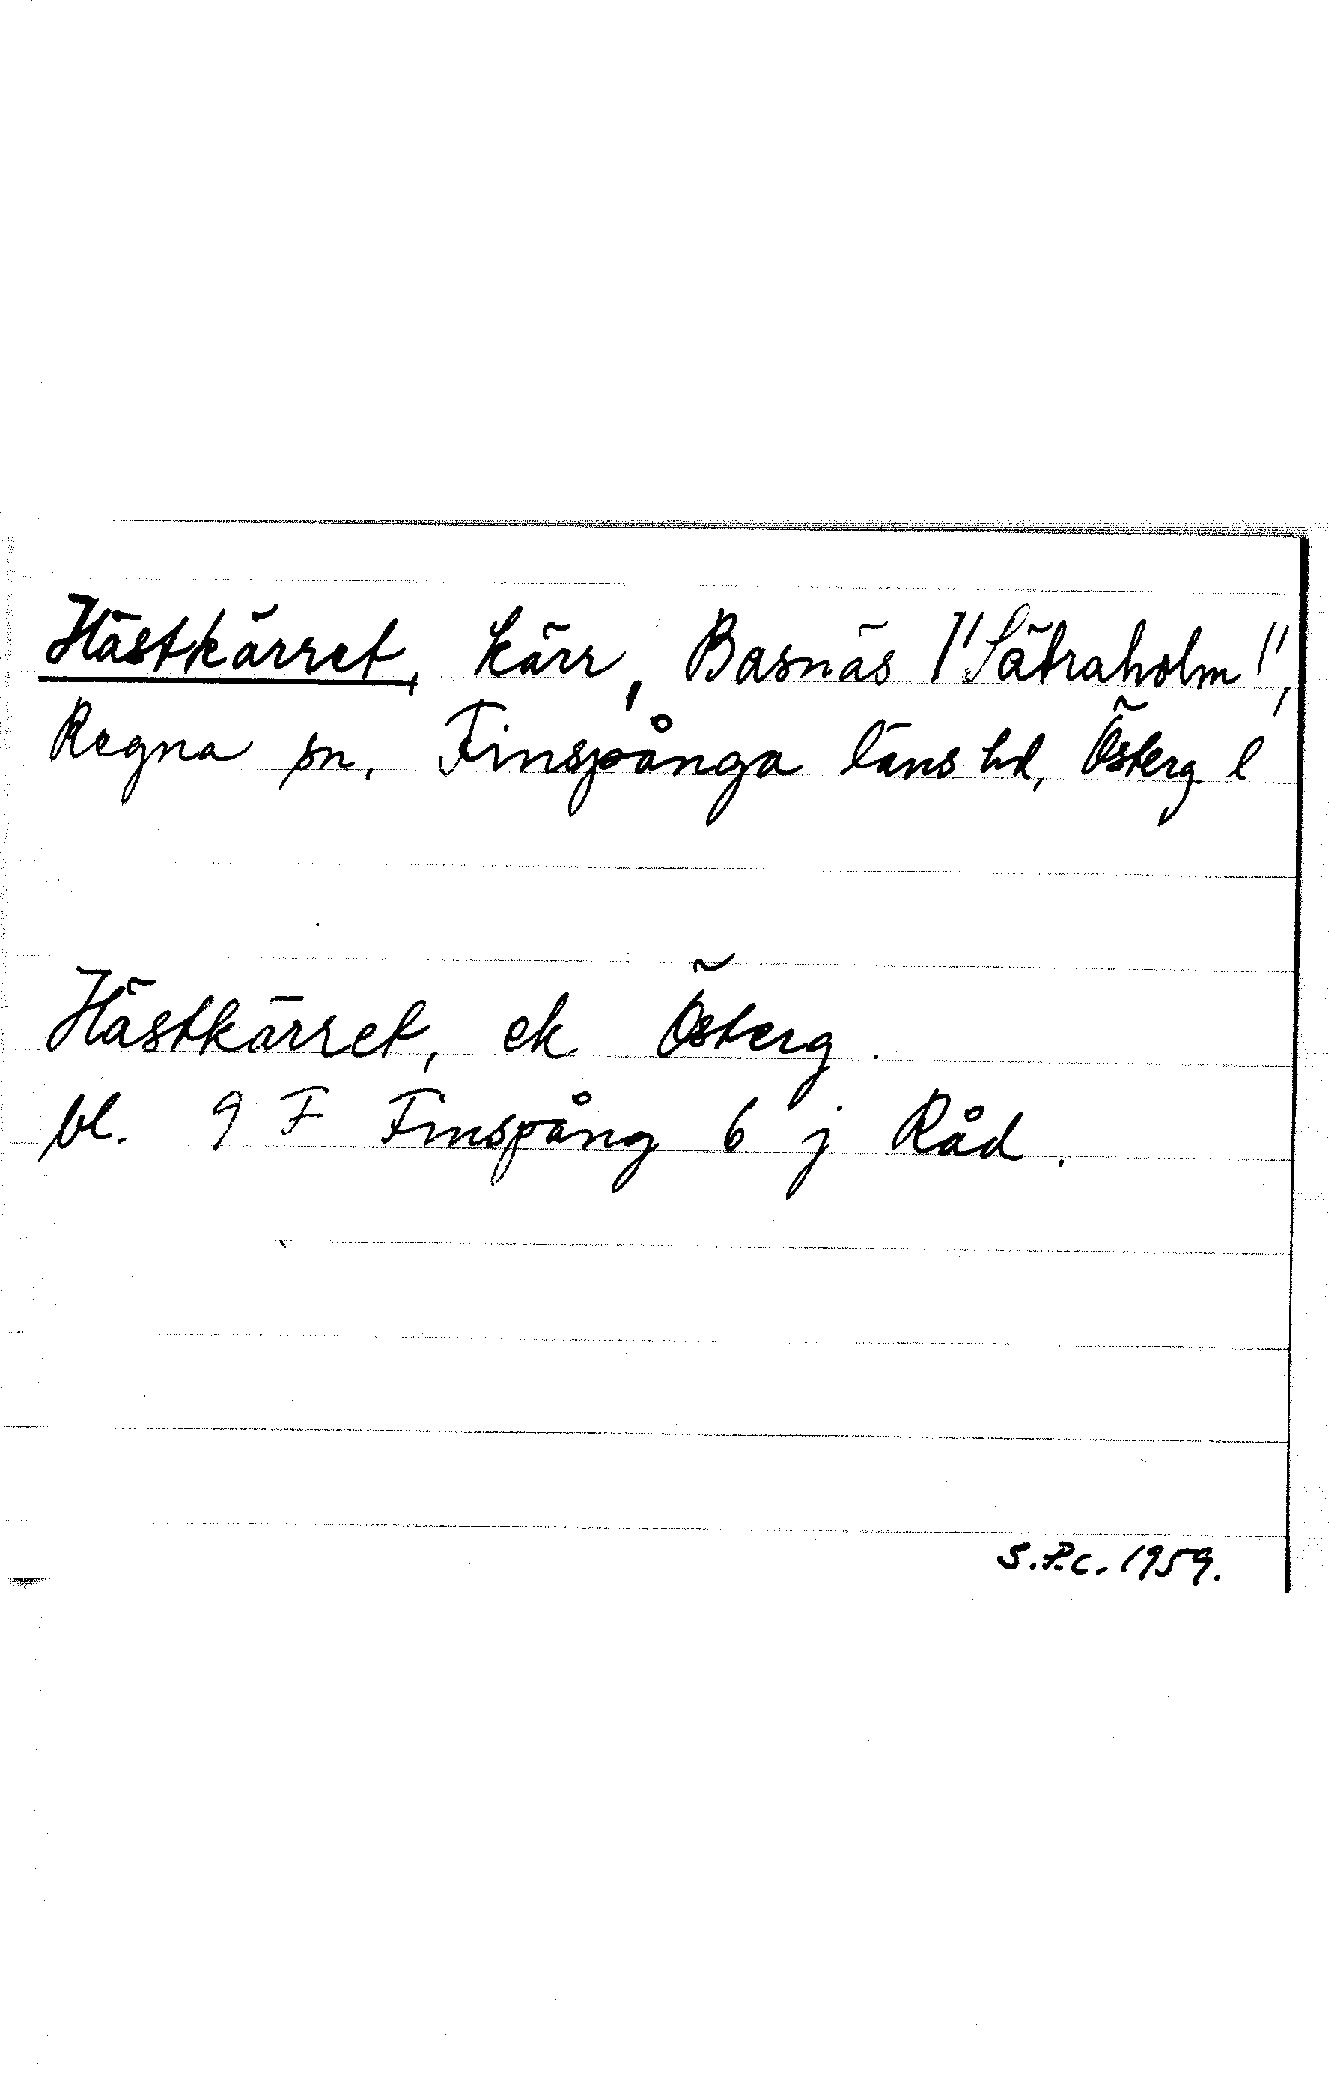 Hästkärret, kärr, Basnäs /"Sätraholm!",
Regna sn, Finspånga läns hd, Österg l
Hästkärret, ek Österg.
bl. 9 F Finspång 6 j Råd.
S.P.c. 1959.